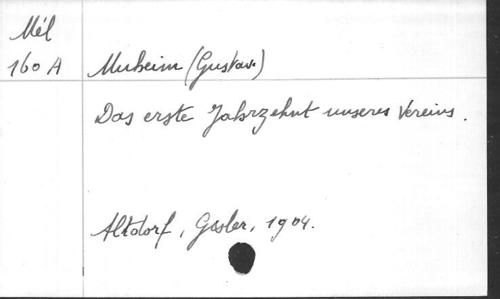 Mél
160 A Muheim (Gustav.)
Das erste Jahrzehnt unseres Vereins.
Altdorf, Gisler, 1904.